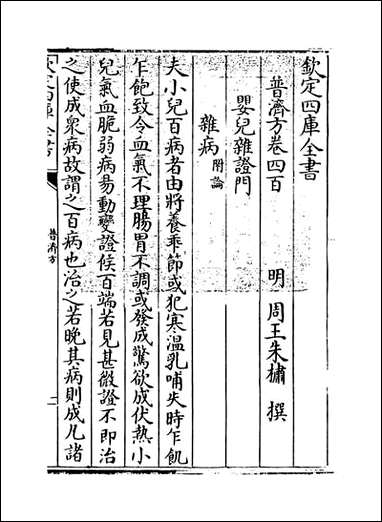 欽定四庫全書
普濟方卷四百
明 周王朱橚 撰
嬰兒雜證門
雜病附論
夫小兒百病者由將養乖節或犯寒溫乳哺失時乍飢
乍飽致令血氣不理腸胃不調或發成驚欲成伏熱小
兒氣血脆弱病易動變證候百端若見甚微證不即治
之使成衆病故謂之百病也治之若晚其病則成凡諸
普濟方